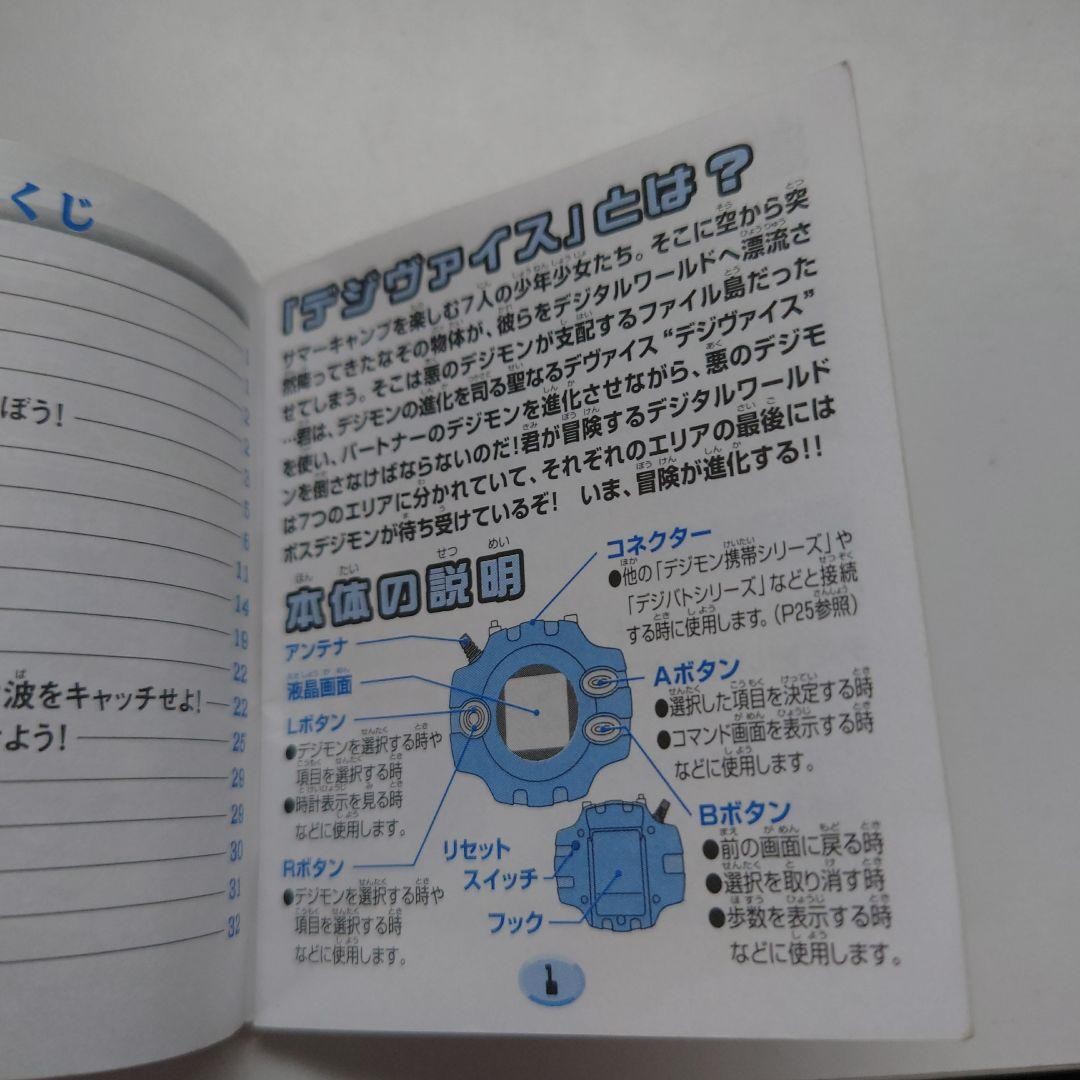 くじ
1
1
ぼう!
2
2
3
5
6
11
14
19
22
波をキャッチせよ! 22
よう! 25
29
29
30
31
32
「デジヴァイス」とは?
サマーキャンプを楽しむ7人の少年少女たち。そこに空から突
然降ってきたなぞの物体が、彼らをデジタルワールドへ漂流さ
せてしまう。そこは悪のデジモンが支配するファイル島だった
…君は、デジモンの進化を司る聖なるデヴァイス“デジヴァイス”
を使い、パートナーのデジモンを進化させながら、悪のデジモ
ンを倒さなけばならないのだ!君が冒険するデジタルワールド
は7つのエリアに分かれていて、それぞれのエリアの最後には
ボスデジモンが待ち受けているぞ! いま、冒険が進化する!!
本体の説明
コネクター
●他の「デジモン携帯シリーズ」や
「デジバトシリーズ」などと接続
する時に使用します。(P25参照)
アンテナ
液晶画面
Lボタン
●デジモンを選択する時や
項目を選択する時
●時計表示を見る時
などに使用します。
Rボタン
●デジモンを選択する時や
項目を選択する時
などに使用します。
Aボタン
●選択した項目を決定する時
●コマンド画面を表示する時
などに使用します。
Bボタン
●前の画面に戻る時
●選択を取り消す時
●歩数を表示する時
などに使用します。
リセット
スイッチ
フック
1